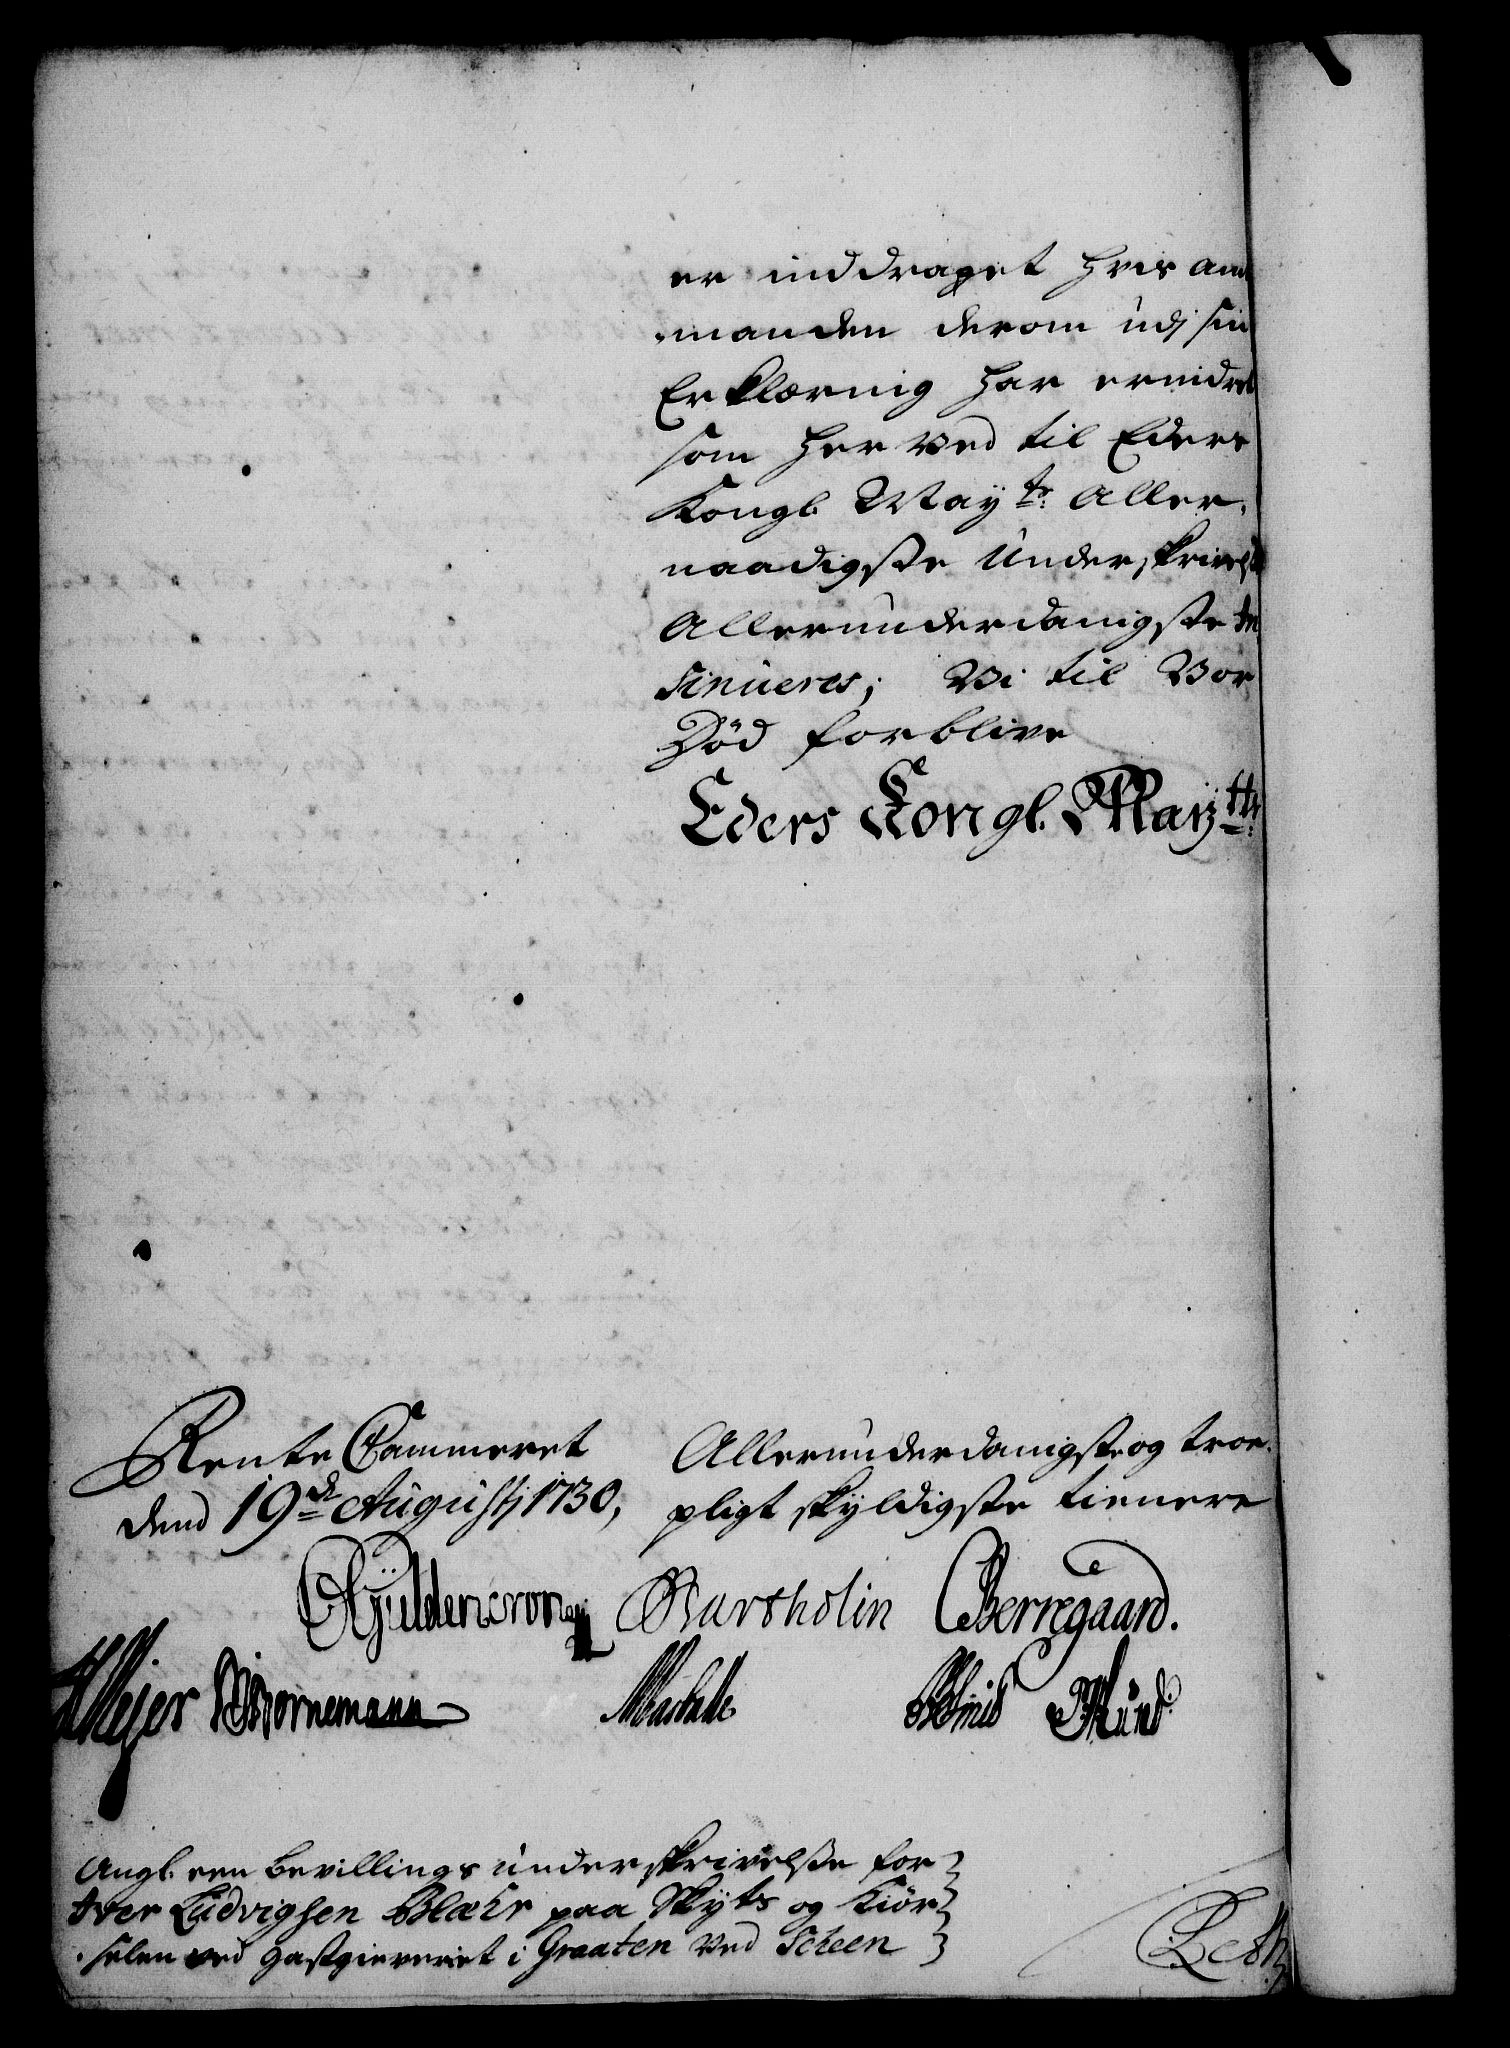 er inddraget hvis amt
manden derom udj sin
Erklæring har erindret
som herved til Eders
Kongl. May:ts Aller,
naadigste Underskrivelse
Allerunderdanigste In
sinueres; Vi til Vor
Död forblive
Eders Kongl. Maytts:
Rente Cammeret
dend 19de Augustj 1730,
Allerunderdanigste og troe,
pligt skyldigste tienere
Güldencrone Bartholin CBerregaard.
Meyer Bornemann
Angl. een bevillings underskrivelse for
Iver Ludvigsen Blæhr paa Skyts og Kiör
selen ved gastgieveriet i Graaten ved Scheen